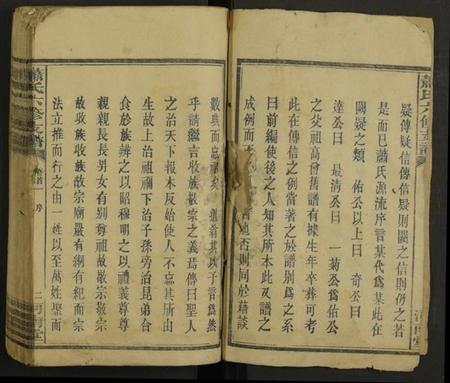 疑傳疑信傳信疑則闕之信則仍之若
是而已蕭氏源流序言某代爲某此在
闕疑之類 佑公以上曰 奇公曰
達公曰 最清公曰 一菊公爲佑公
之父祖高會舊譜有據生年卒葬可考
此在傳信之例當著之於譜別爲之系
曰前編使後之人知其所本此及譜之
成例而 也否則同於藉談
數典而忘 其以子言爲然
乎請繼言收族敬宗之義焉傳曰聖人
之治天下報本反始使人不忘其所由
生故上治祖禰下治子孫旁治昆弟合
食序族辨之以昭穆明之以禮義尊尊
親親長長男女有別尊祖故敬宗敬宗
故收族收族故宗廟嚴有綱有紀而宗
法立推而行之由一姓以至萬姓聖而
蕭氏六修支譜
序